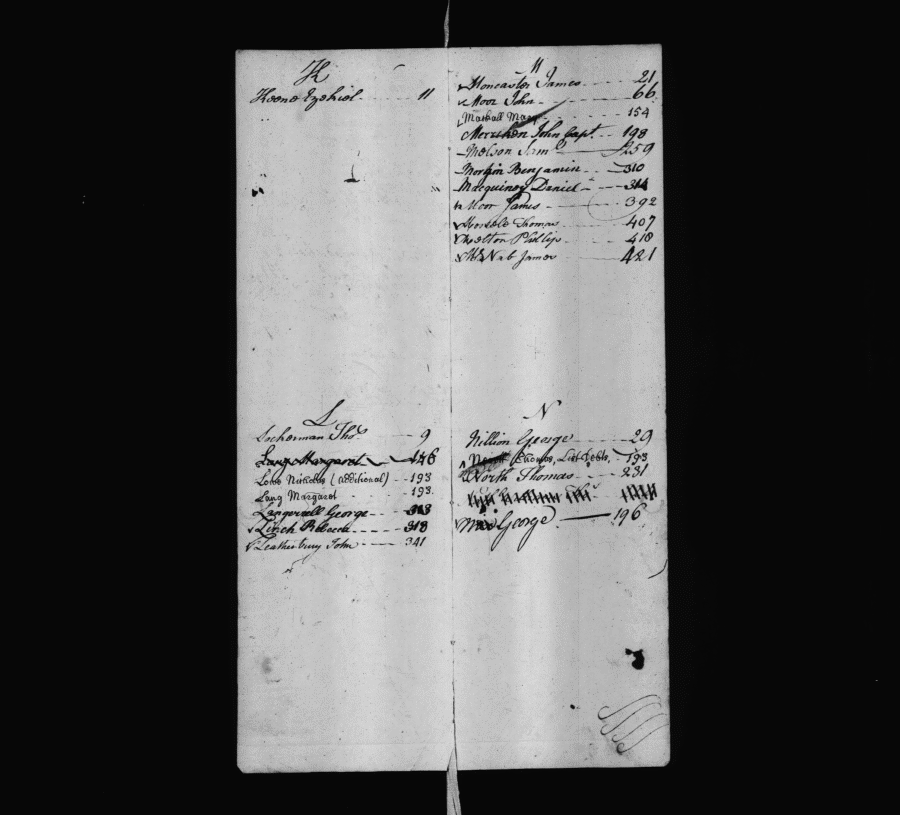 K
Keene Ezekiel 11
L
Scherman Thos 9
Lang Margaret 126
Lowe Nicholas (additional) 193
Lang Margaret 193
Langervell George 318
Linch Rebecca 318
Leatherbury John 341
M
Moncaster James 21
Moor John 66
Marshall Mary 154
Merriken John Capt. 198
Melson Saml 259
Morgin Benjamin 310
Macquiney Daniel 314
Moor James 392
Thomas 407
Melton Phillip 418
McNab James 421
N
Nillion George 29
Thomas, 193
North Thomas 231
George 196